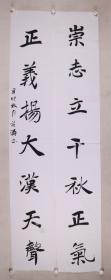 崇志立千秋正氣
正義揚大漢天聲